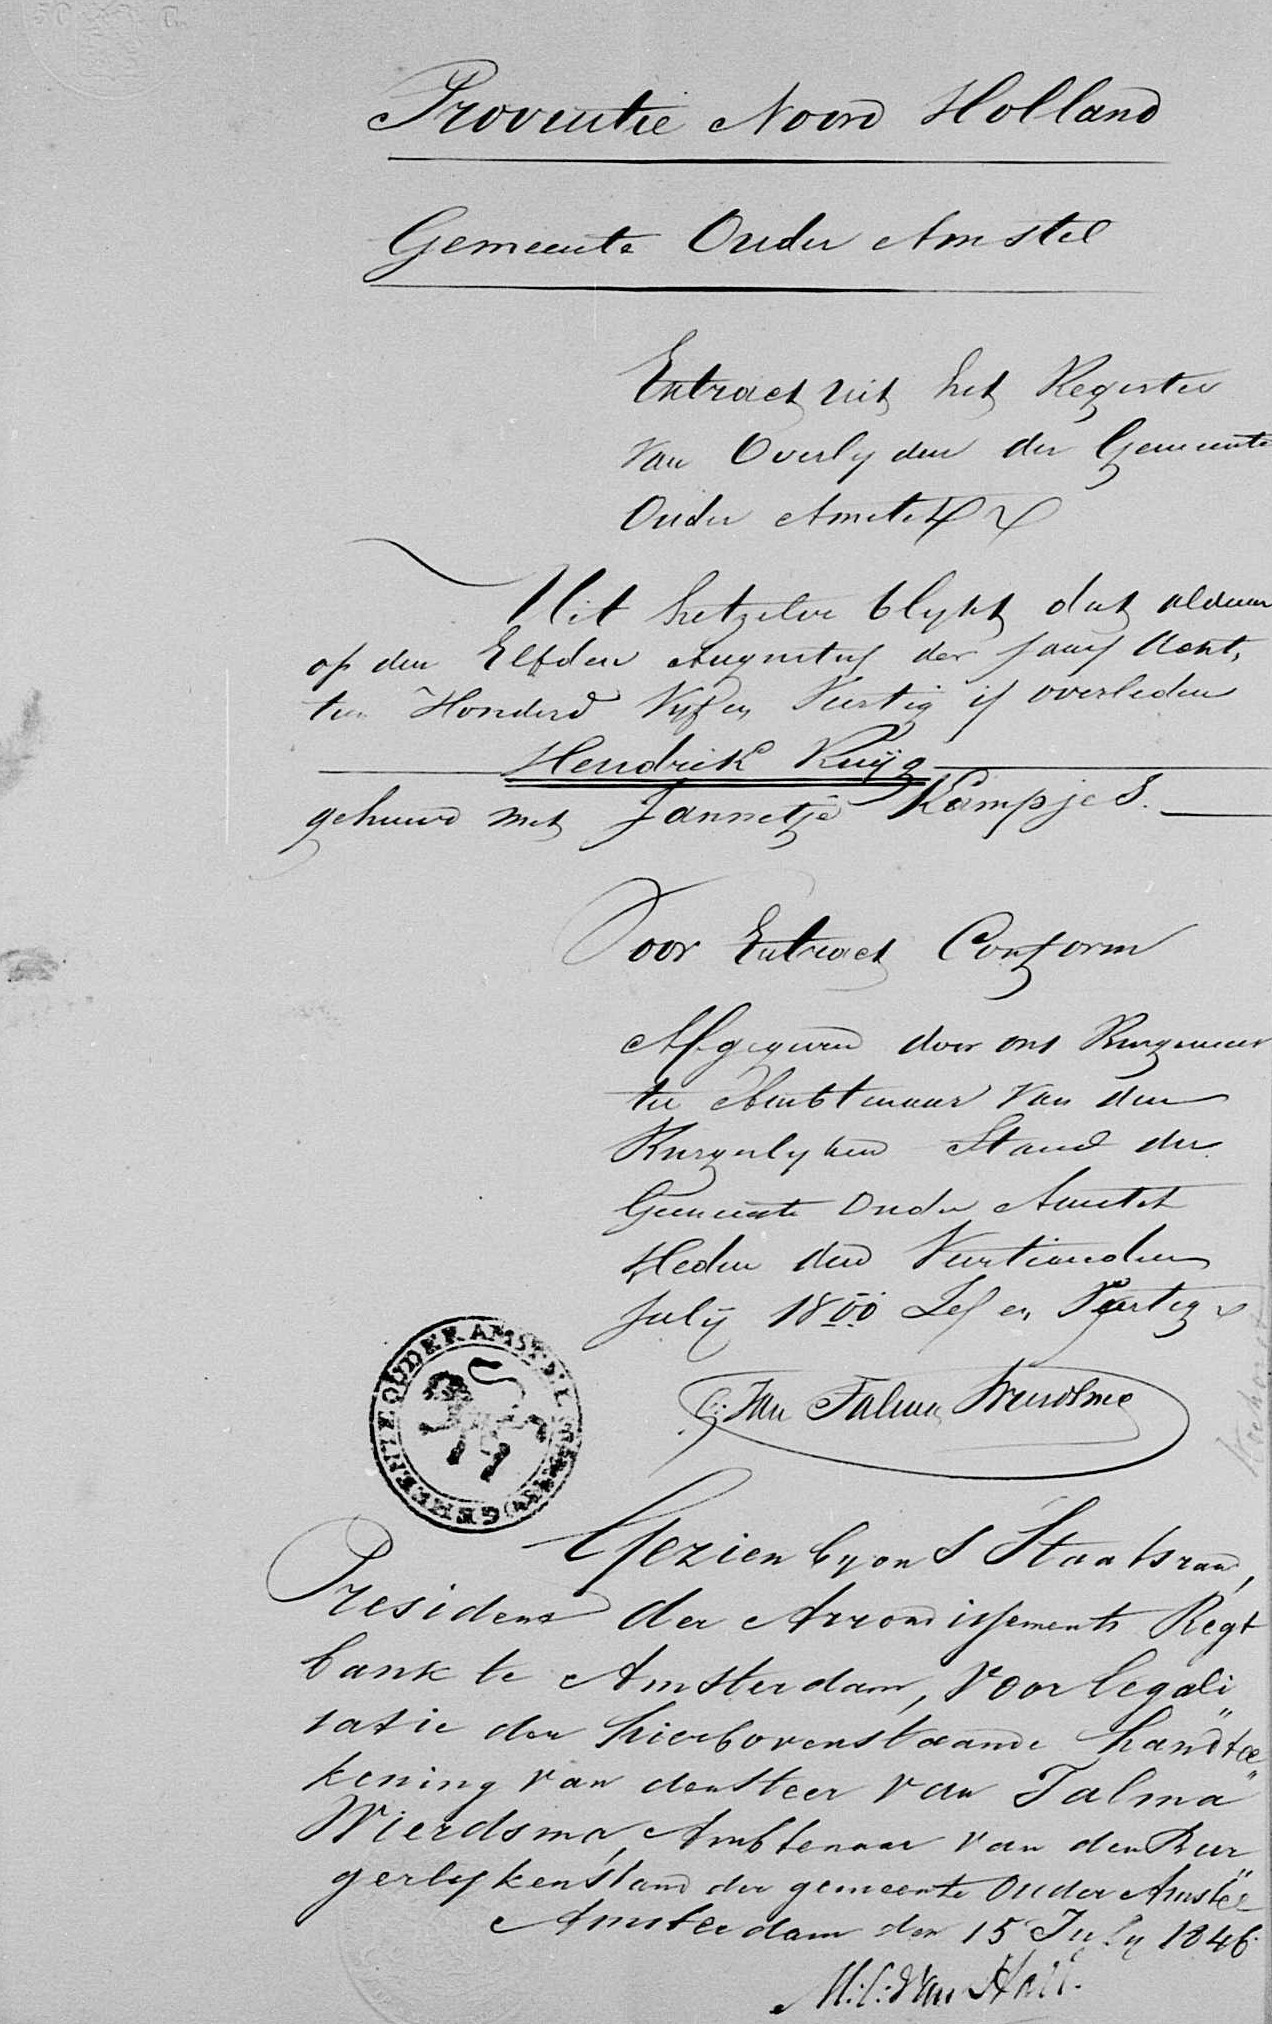 Proventie Noord Holland
Gemeente Ouder Amstel
Extract uit het Register
van Overlyden der Gemeente
Ouder Amstel
Uit hetzelve blykt dat aldaar
op den Elfden Augustus des Jaars Acht,
tien Honderd Vyf en Veertig is overleden
Hendrik Kuijg
gehuwd met Jannetje Kampjes.
Voor Extract Conform
Afgegeven door ons Burgemees
ter Ambtenaar van den
Burgerlyken Stand der
Gemeente Ouder Amstel
Heden den Veertienden
July 1800 Zes en Veertig
van Talma Wierdsma
GEMEENTE OUDER AMSTEL
Gezien by ons Staatsraad,
President der Arrondissements Regt
bank te Amsterdam, voor legali
satie der hierbovenstaande handtee
kening van den Heer van Talma
Wierdsma, Ambtenaar van den Bur
gerlyken stand der gemeente Ouder Amstel
Amsterdam den 15 July 1846.
M: C: Van Hall.